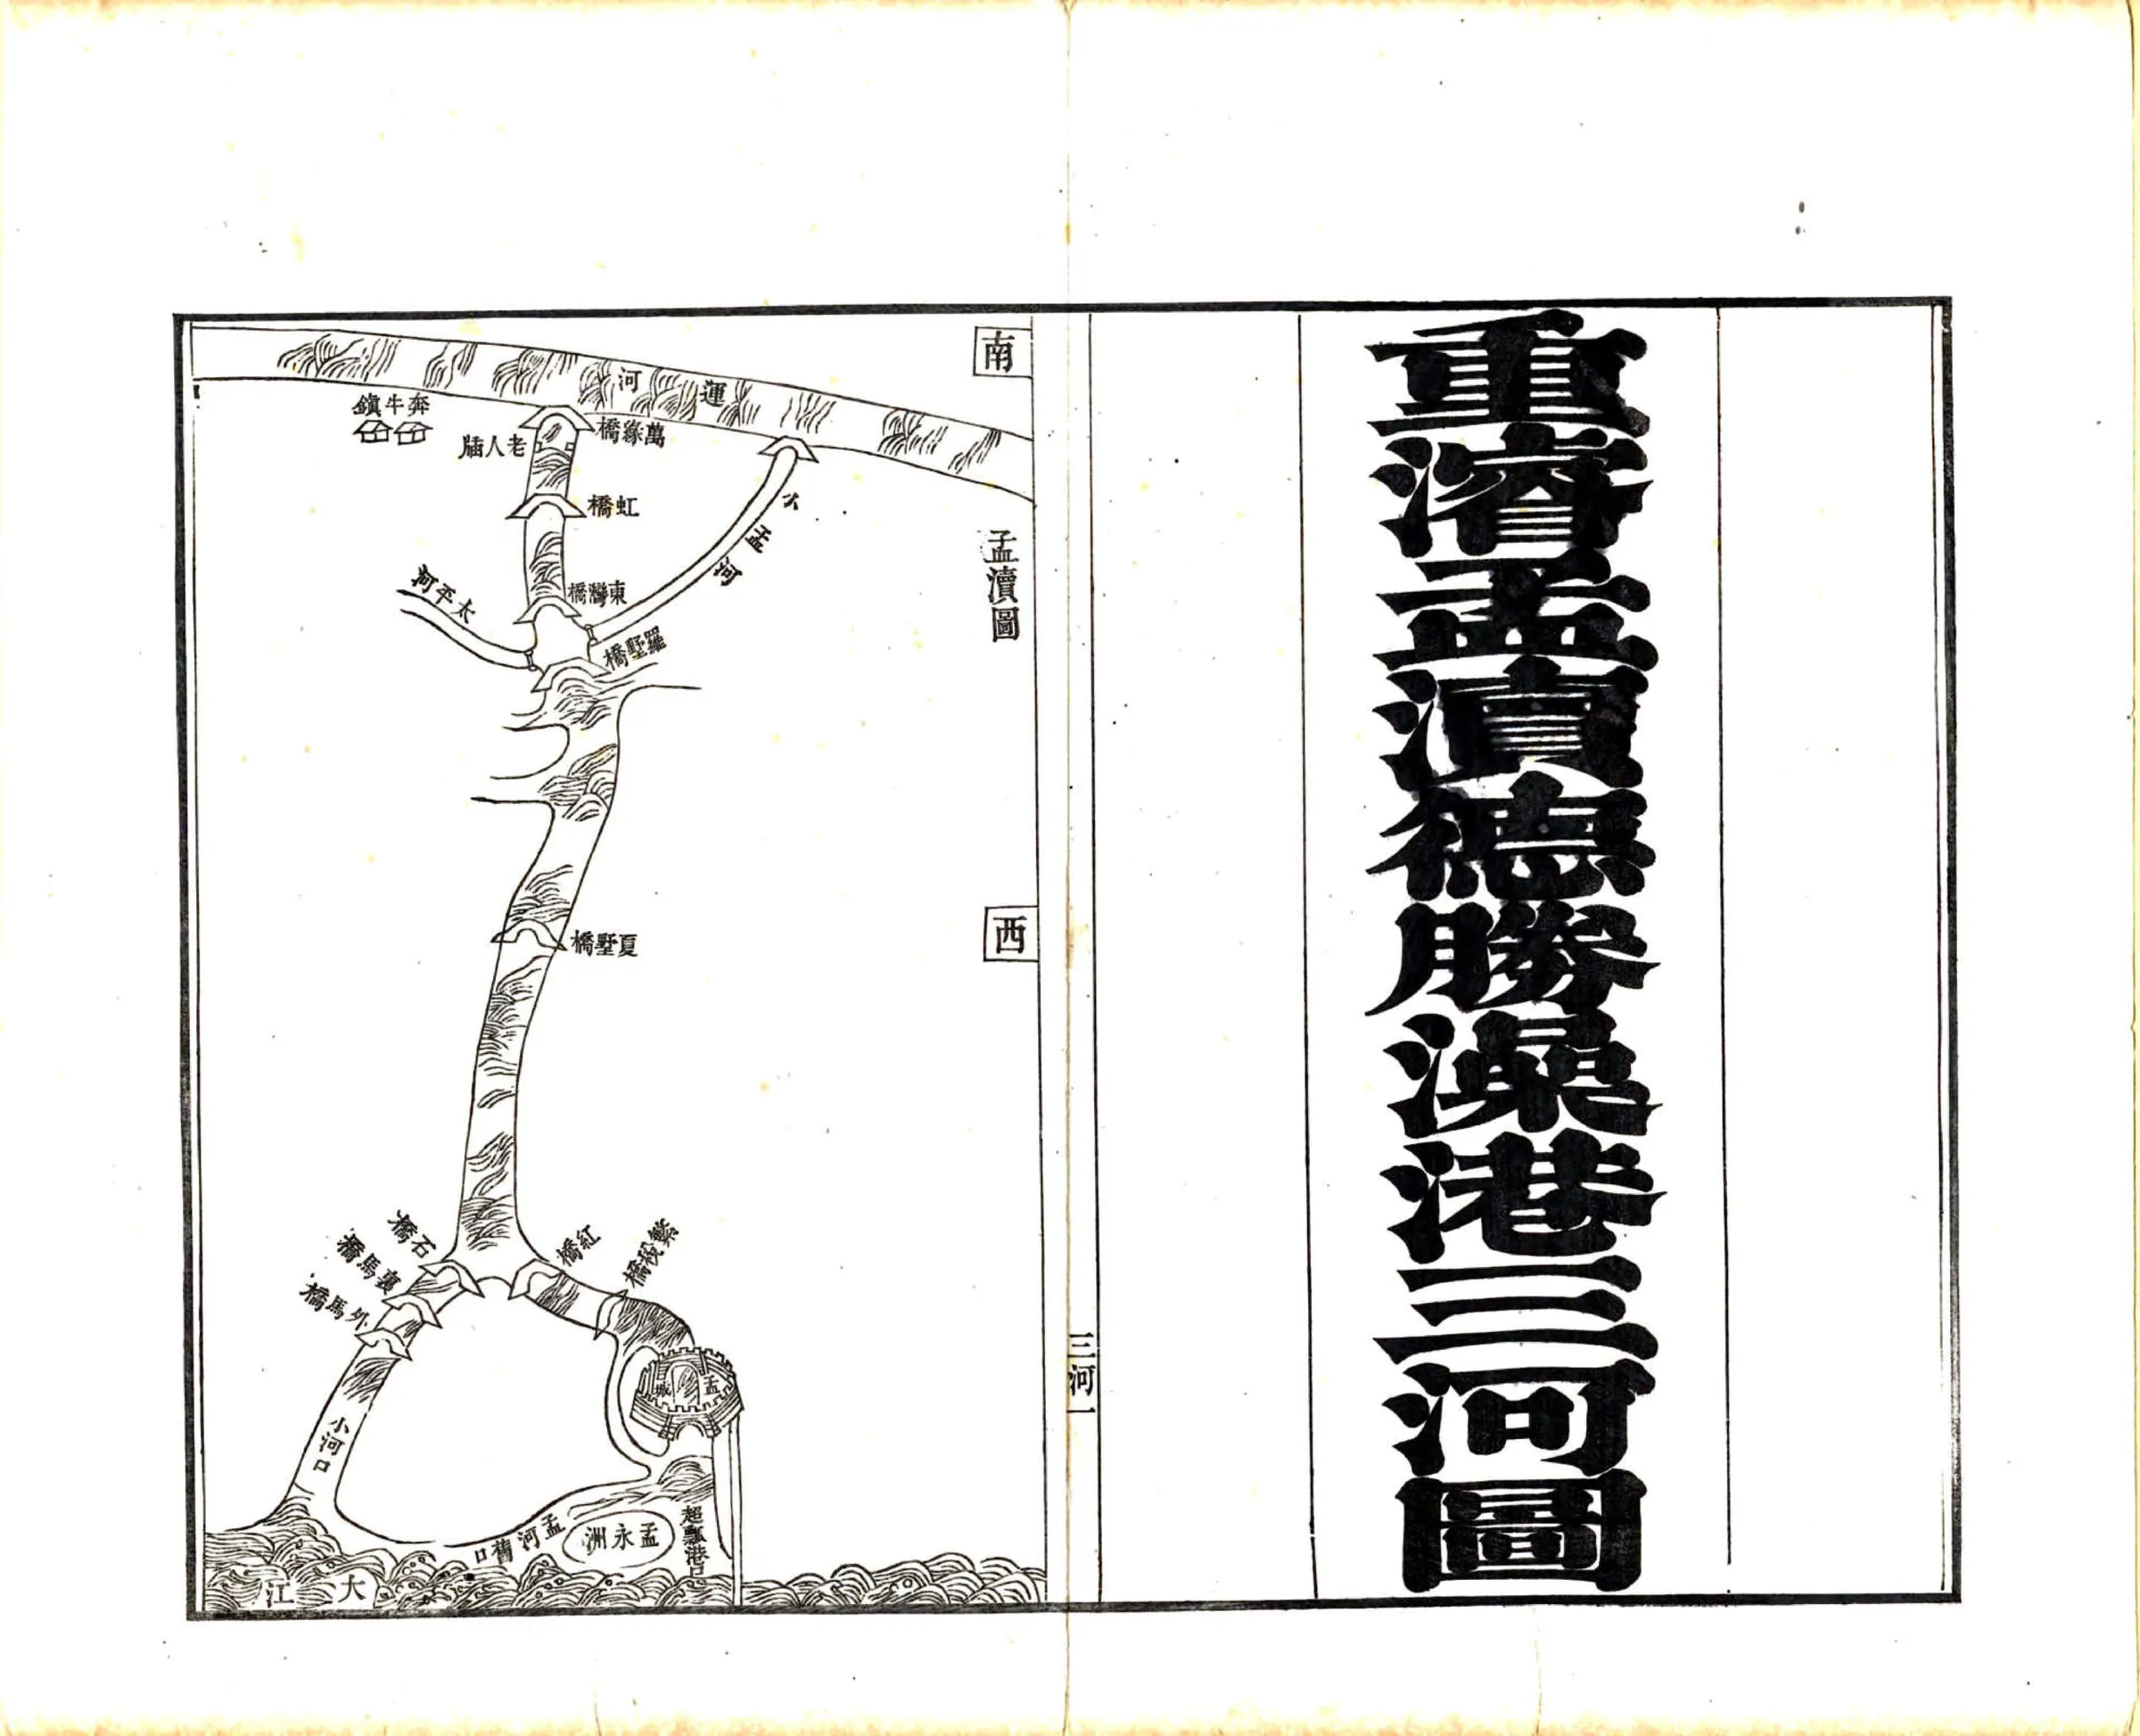 重濬孟瀆德勝澡港三河圖
三河一
南
孟瀆圖
西
運河
奔牛鎮
萬緣橋
老人牐
虹橋
小孟河
東灣橋
太平河
羅墅橋
夏墅橋
石橋
裏馬橋
外馬橋
紅橋
小河口
孟城
超瓢港口
孟永洲
孟河舊口
大江